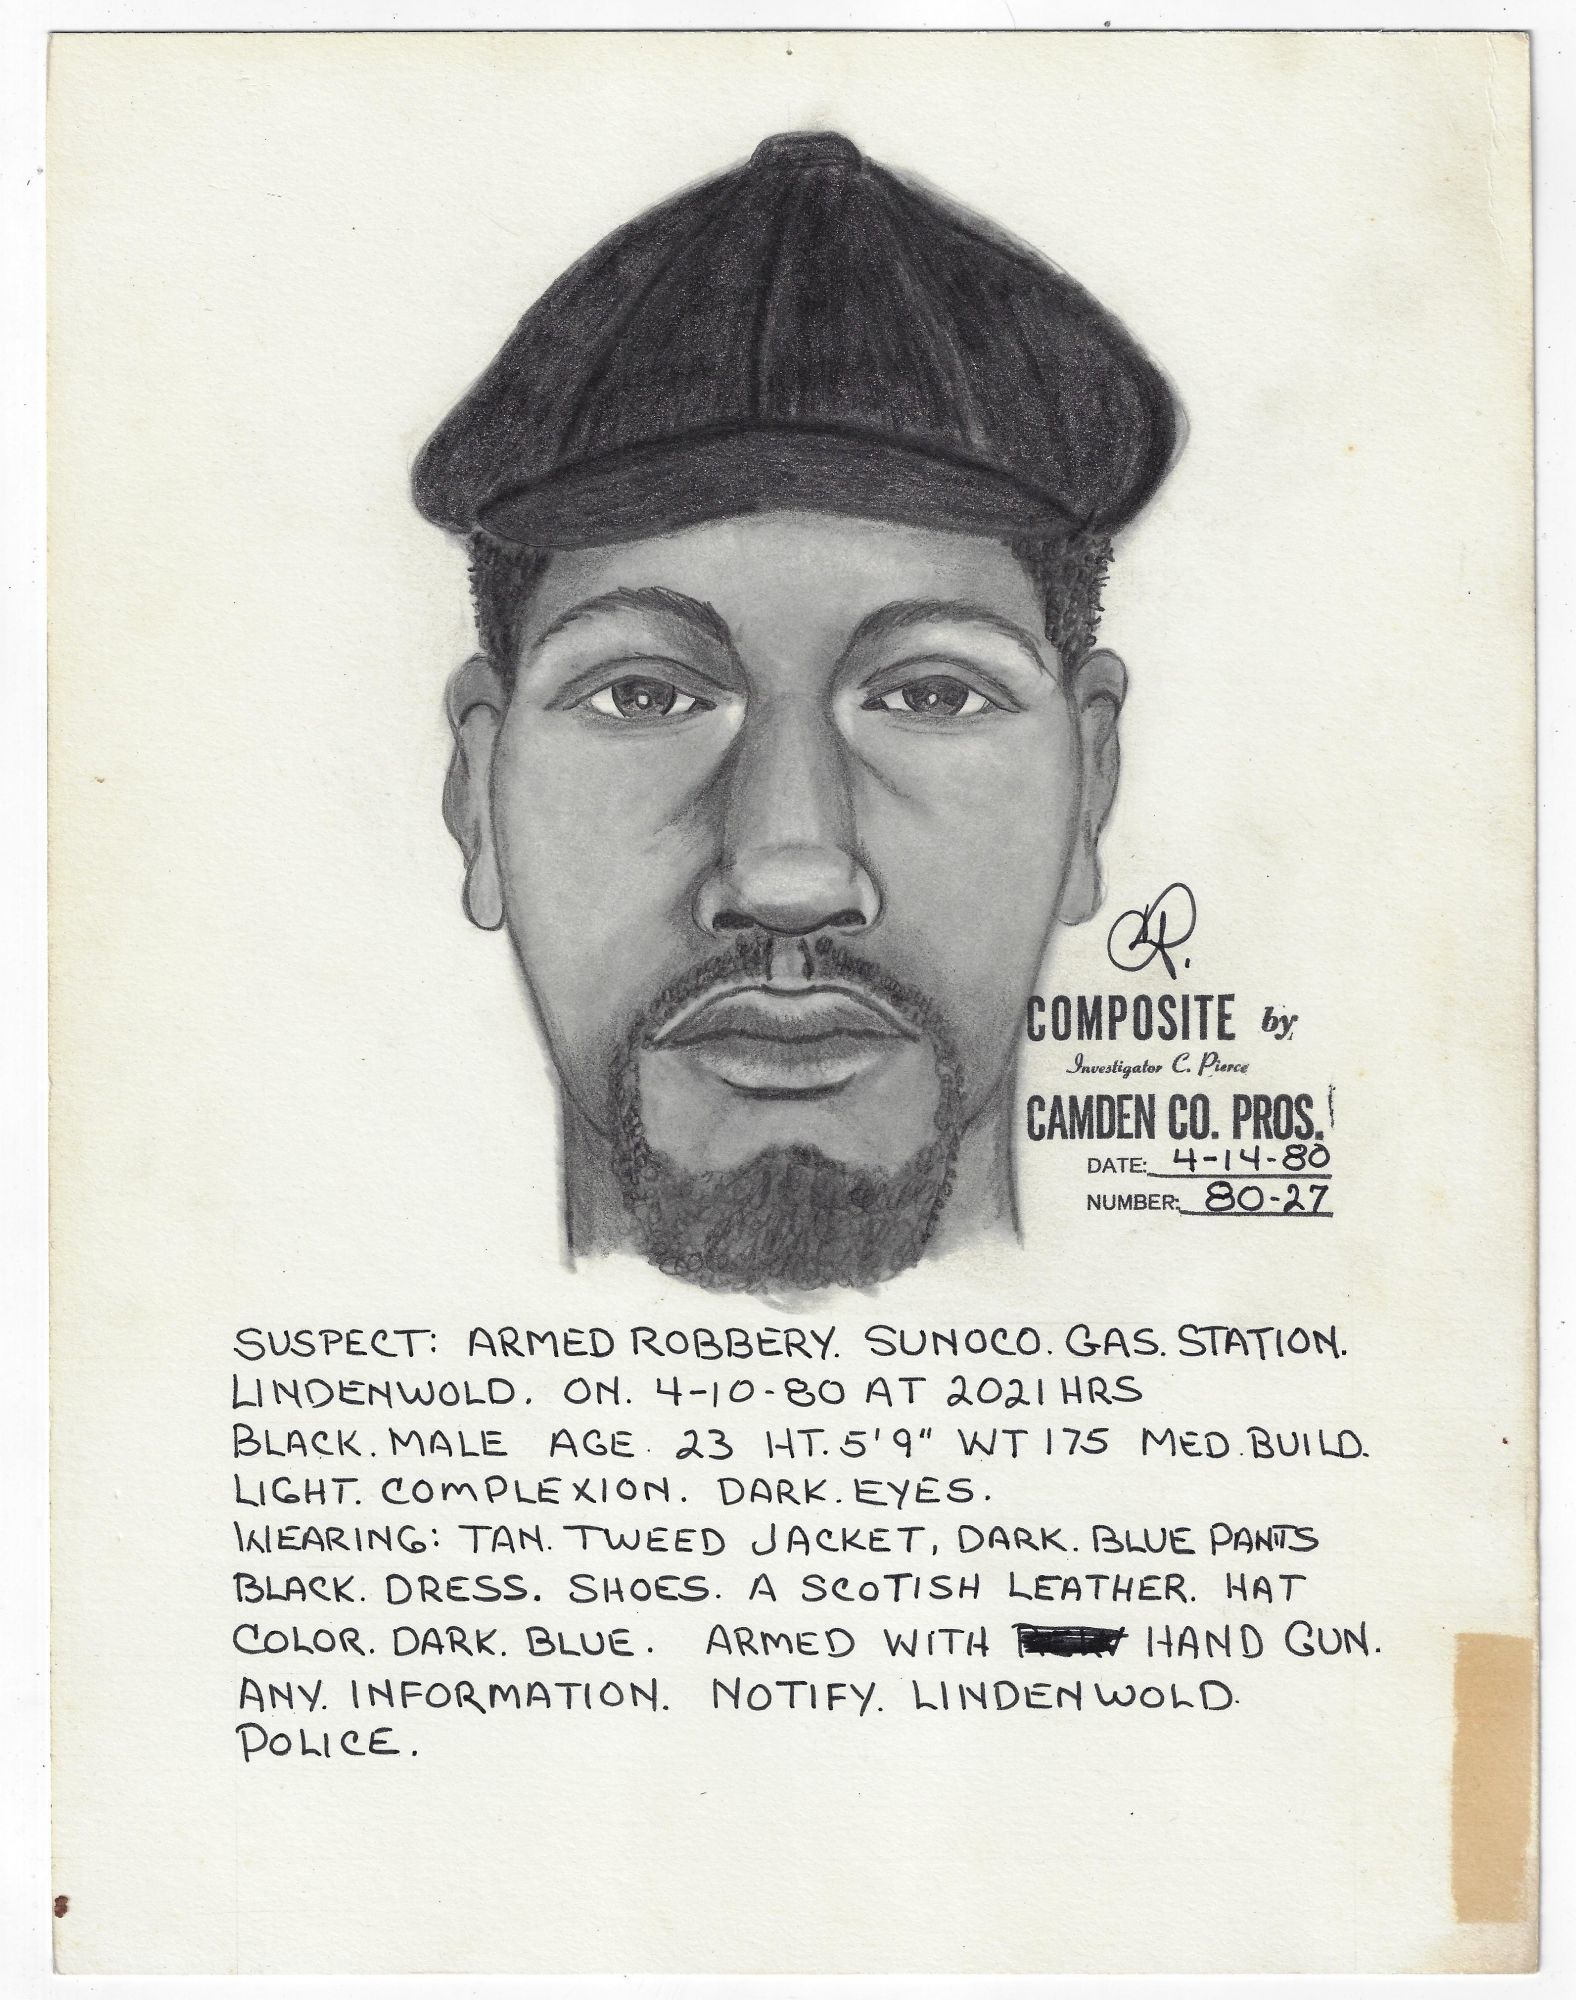 CP.
COMPOSITE by
Investigator C. Pierce
CAMDEN CO. PROS.
DATE: 4-14-80
NUMBER: 80-27
SUSPECT: ARMED ROBBERY. SUNOCO. GAS. STATION.
LINDENWOLD. ON. 4-10-80 AT 2021 HRS
BLACK. MALE AGE. 23 HT. 5'9" WT 175 MED. BUILD.
LIGHT. COMPLEXION. DARK. EYES.
WEARING: TAN. TWEED JACKET, DARK. BLUE PANTS
BLACK. DRESS. SHOES. A SCOTISH LEATHER. HAT
COLOR. DARK. BLUE. ARMED WITH HAND GUN.
ANY. INFORMATION. NOTIFY. LINDENWOLD.
POLICE.